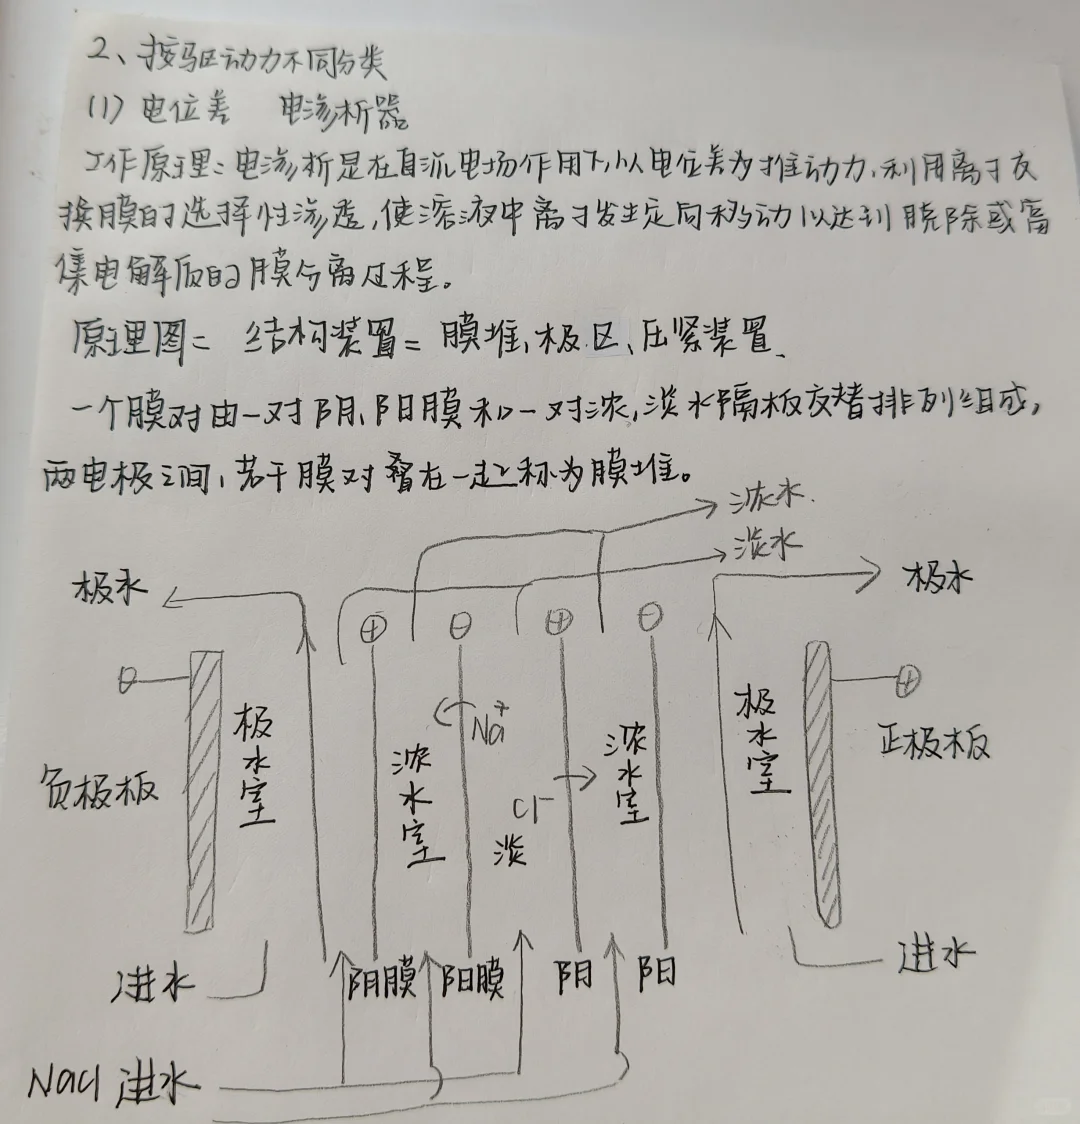 2、按驱动力不同分类
(1) 电位差 电渗析器
工作原理:电渗析是在直流电场作用下,以电位差为推动力,利用离子交
换膜的选择性渗透,使溶液中离子发生定向移动以达到脱除或富
集电解质的膜分离过程。
原理图: 结构装置:膜堆、极区、压紧装置、
一个膜对由一对阴、阳膜和一对浓,淡水隔板交替排列组成,
两电极之间,若干膜对叠在一起称为膜堆。
浓水.
淡水
极水
极水
⊕ ⊖ ⊕ ⊖
⊖
⊕
负极板
极水室
浓水室
Na⁺
Cl⁻
淡
浓水室
极水室
正极板
进水
阴膜 阳膜 阴 阳
进水
NaCl 进水